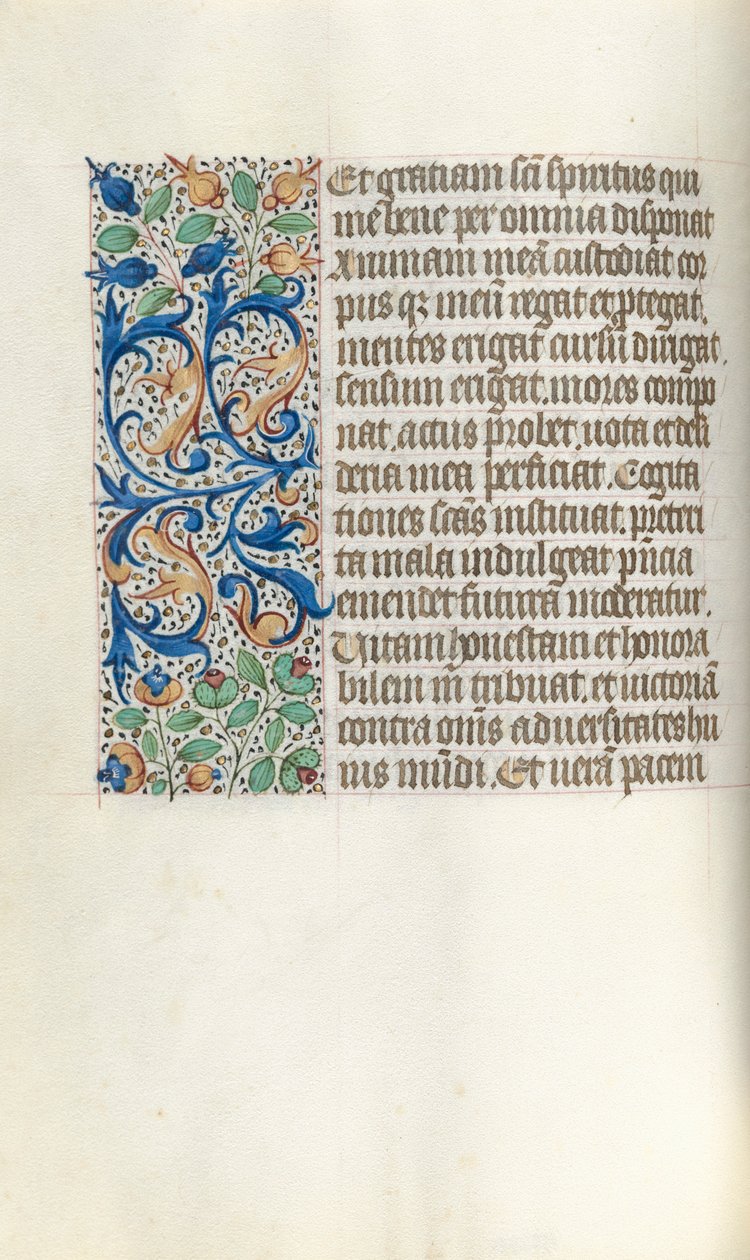 Et gratiam scī spiritus qui
me bene per omnia disponat
Animam meā custodiat cor
pus qꝫ meū regat et ꝓtegat.
mentes erigat cursū dirigat.
sensum erigat. mores compo
nat. actus probet. uota et desi
deria mea perficiat. Cogita
tiones scās instituat. preteri
ta mala indulgeat p̄ncia
emendet futura moderatur.
Vitam honestam et honora
bilem m̄ tribuat. et uictoriā
contra om̄s aduersitates hu
ius mūdi. Et uerā pacem